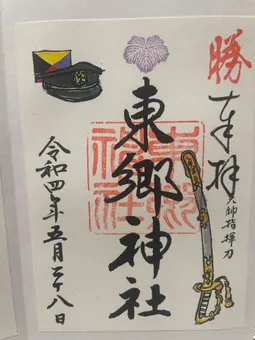 勝
奉拝
元帥指揮刀
東郷神社
東郷
神社
令和四年五月二十八日